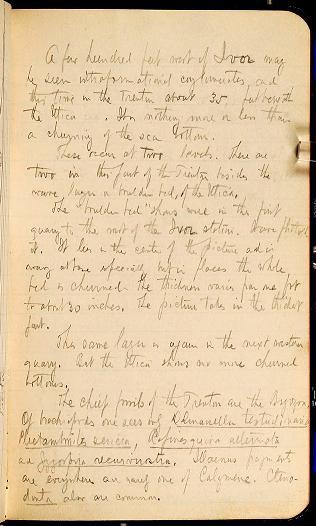 A few hundred feet west of Ivor may
be seen intraformational conglomerates, and
this time in the Trenton about 35 feet beneath
the Utica. It is nothing more or less than
a churning of the sea bottom.
These occur at two levels. There are
two in this part of the Trenton besides the
boulder bed, of the Utica.
The "boulder bed" shows well in the first
quarry to the west of the Ivor station. Have photo of
it. It lies in the center of the picture and is
but in places the whole
bed is churned. The thickness varies from one foot
to about 30 inches. The picture takes in the thickest
part.
This same layer is again in the next western
quarry. But the Utica shows no more churned
bottoms.
The chief fossils of the Trenton are the Bryozoa
Of brachiopods one sees only Dalmanella testudinaria
Plectambonites sericeus, Rafinesquina alternata
and Zygospira recurvirostra. Illaenus fragments
are everywhere and rarely one of Calymene. Cteno-
donta also are common.